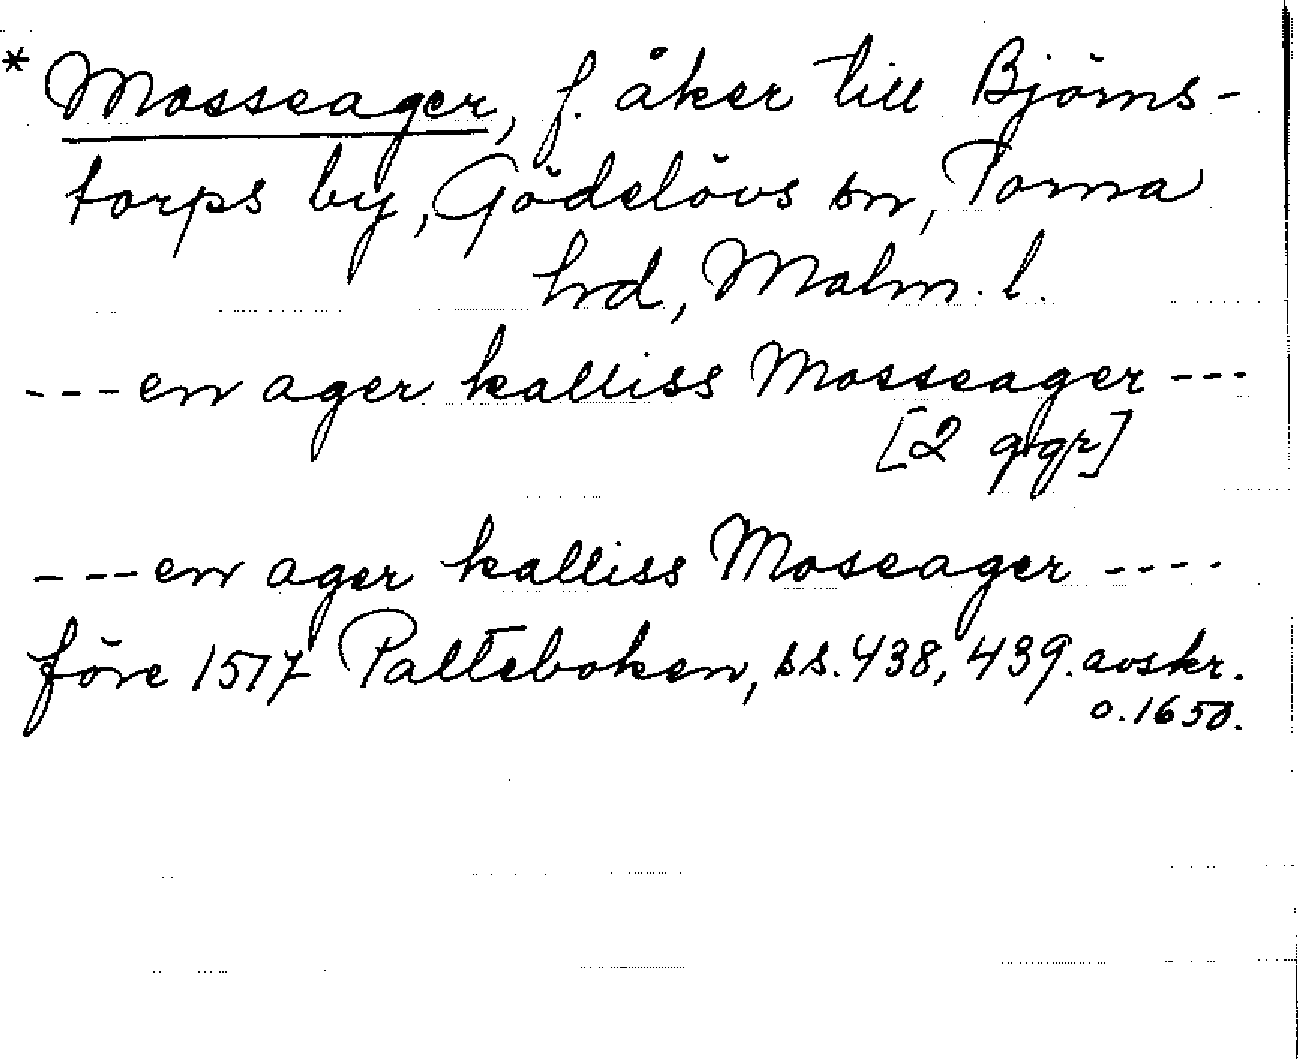 * Mosseager, f. åker till Björns-
torps by, Gödelövs sn, Torna
hrd, Malm. l.
---en ager kalliss Mosseager---
[2 ggr]
---en ager kalliss Moseager----
före 1517 Palteboken, ss. 438, 439. avskr.
o. 1650.